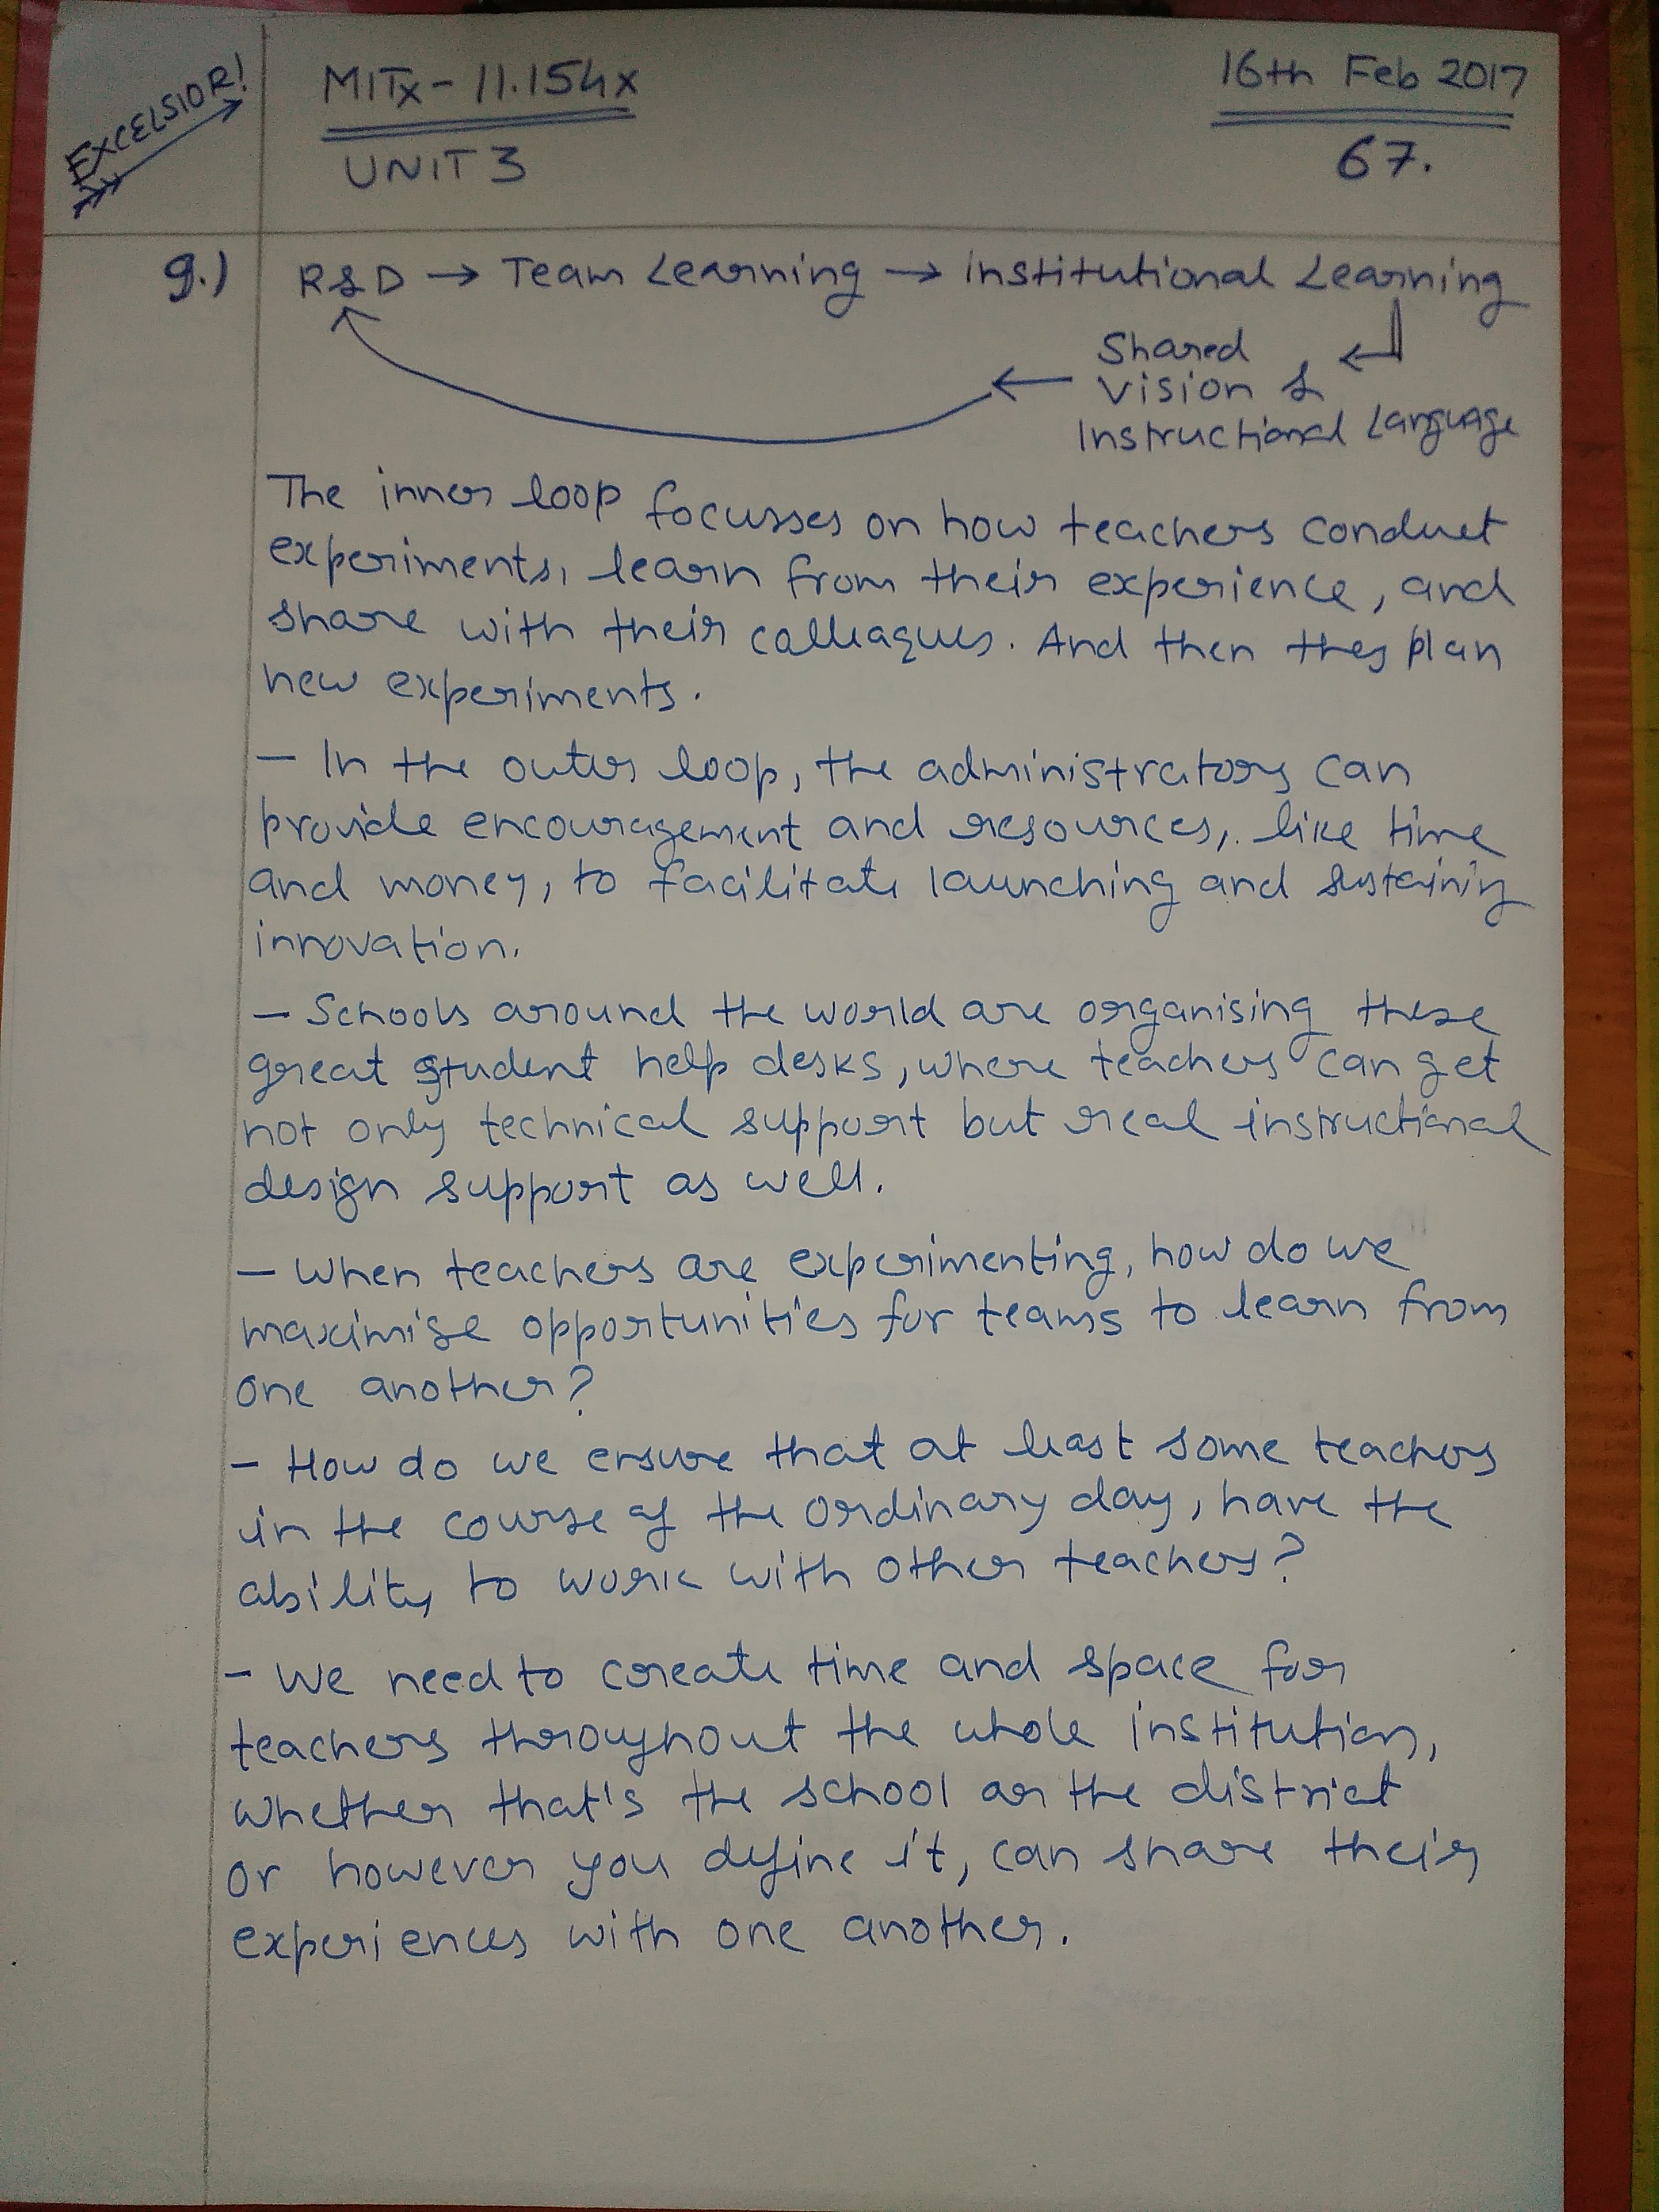 EXCELSIOR!
MITx - 11.154x
UNIT 3
16th Feb 2017
67.
9.) R&D → Team Learning → Institutional Learning
Shared
Vision &
Instructional Language
The inner loop focusses on how teachers conduct
experiments, learn from their experience, and
share with their colleagues. And then they plan
new experiments.
— In the outer loop, the administrators can
provide encouragement and resources, like time
and money, to facilitate launching and sustaining
innovation.
— Schools around the world are organising these
great student help desks, where teachers can get
not only technical support but real instructional
design support as well.
— When teachers are experimenting, how do we
maximise opportunities for teams to learn from
one another?
— How do we ensure that at least some teachers
in the course of the ordinary day, have the
ability to work with other teachers?
— We need to create time and space for
teachers throughout the whole institution,
whether that's the school or the district
or however you define it, can share their
experiences with one another.